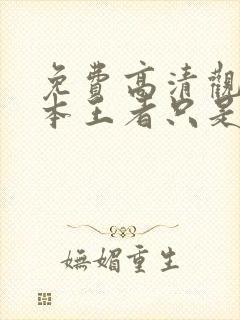 免費高清觀
本王者只是
嫵媚重生